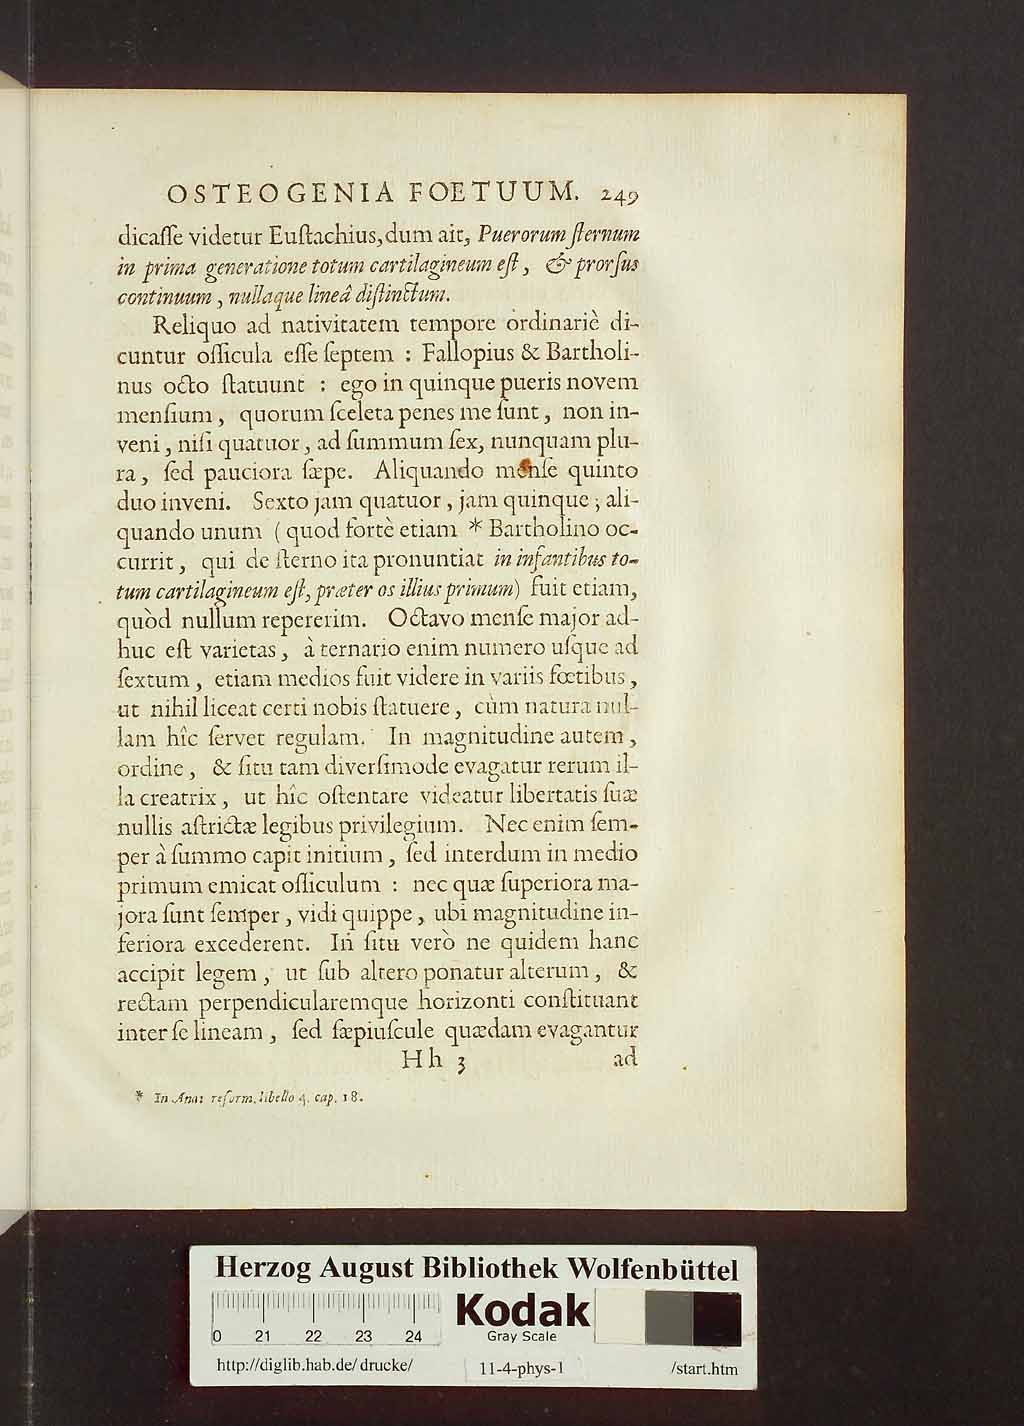 OSTEOGENIA FOETUUM. 249
dicaſſe videtur Euſtachius, dum ait, Puerorum ſternum
in prima generatione totum cartilagineum eſt, & prorſus
continuum, nullaque lineâ diſtinctum.
Reliquo ad nativitatem tempore ordinariè di-
cuntur oſſicula eſſe ſeptem : Fallopius & Bartholi-
nus octo ſtatuunt : ego in quinque pueris novem
menſium, quorum ſceleta penes me ſunt, non in-
veni, niſi quatuor, ad ſummum ſex, nunquam plu-
ra, ſed pauciora ſæpe. Aliquando menſe quinto
duo inveni. Sexto jam quatuor, jam quinque; ali-
quando unum (quod fortè etiam * Bartholino oc-
currit, qui de ſterno ita pronuntiat in infantibus to-
tum cartilagineum eſt, præter os illius primum) fuit etiam,
quòd nullum repererim. Octavo menſe major ad-
huc eſt varietas, à ternario enim numero uſque ad
ſextum, etiam medios fuit videre in variis fœtibus,
ut nihil liceat certi nobis ſtatuere, cùm natura nul-
lam hîc ſervet regulam. In magnitudine autem,
ordine, & ſitu tam diverſimode evagatur rerum il-
la creatrix, ut hîc oſtentare videatur libertatis ſuæ
nullis aſtrictæ legibus privilegium. Nec enim ſem-
per à ſummo capit initium, ſed interdum in medio
primum emicat oſſiculum : nec quæ ſuperiora ma-
jora ſunt ſemper, vidi quippe, ubi magnitudine in-
feriora excederent. In ſitu verò ne quidem hanc
accipit legem, ut ſub altero ponatur alterum, &
rectam perpendicularemque horizonti conſtituant
inter ſe lineam, ſed ſæpiuſcule quædam evagantur
Hh 3 ad
* In Anat reform. libello 4. cap. 18.
Herzog August Bibliothek Wolfenbüttel
0 21 22 23 24
Kodak
Gray Scale
http://diglib.hab.de/drucke/ 11-4-phys-1 /start.htm